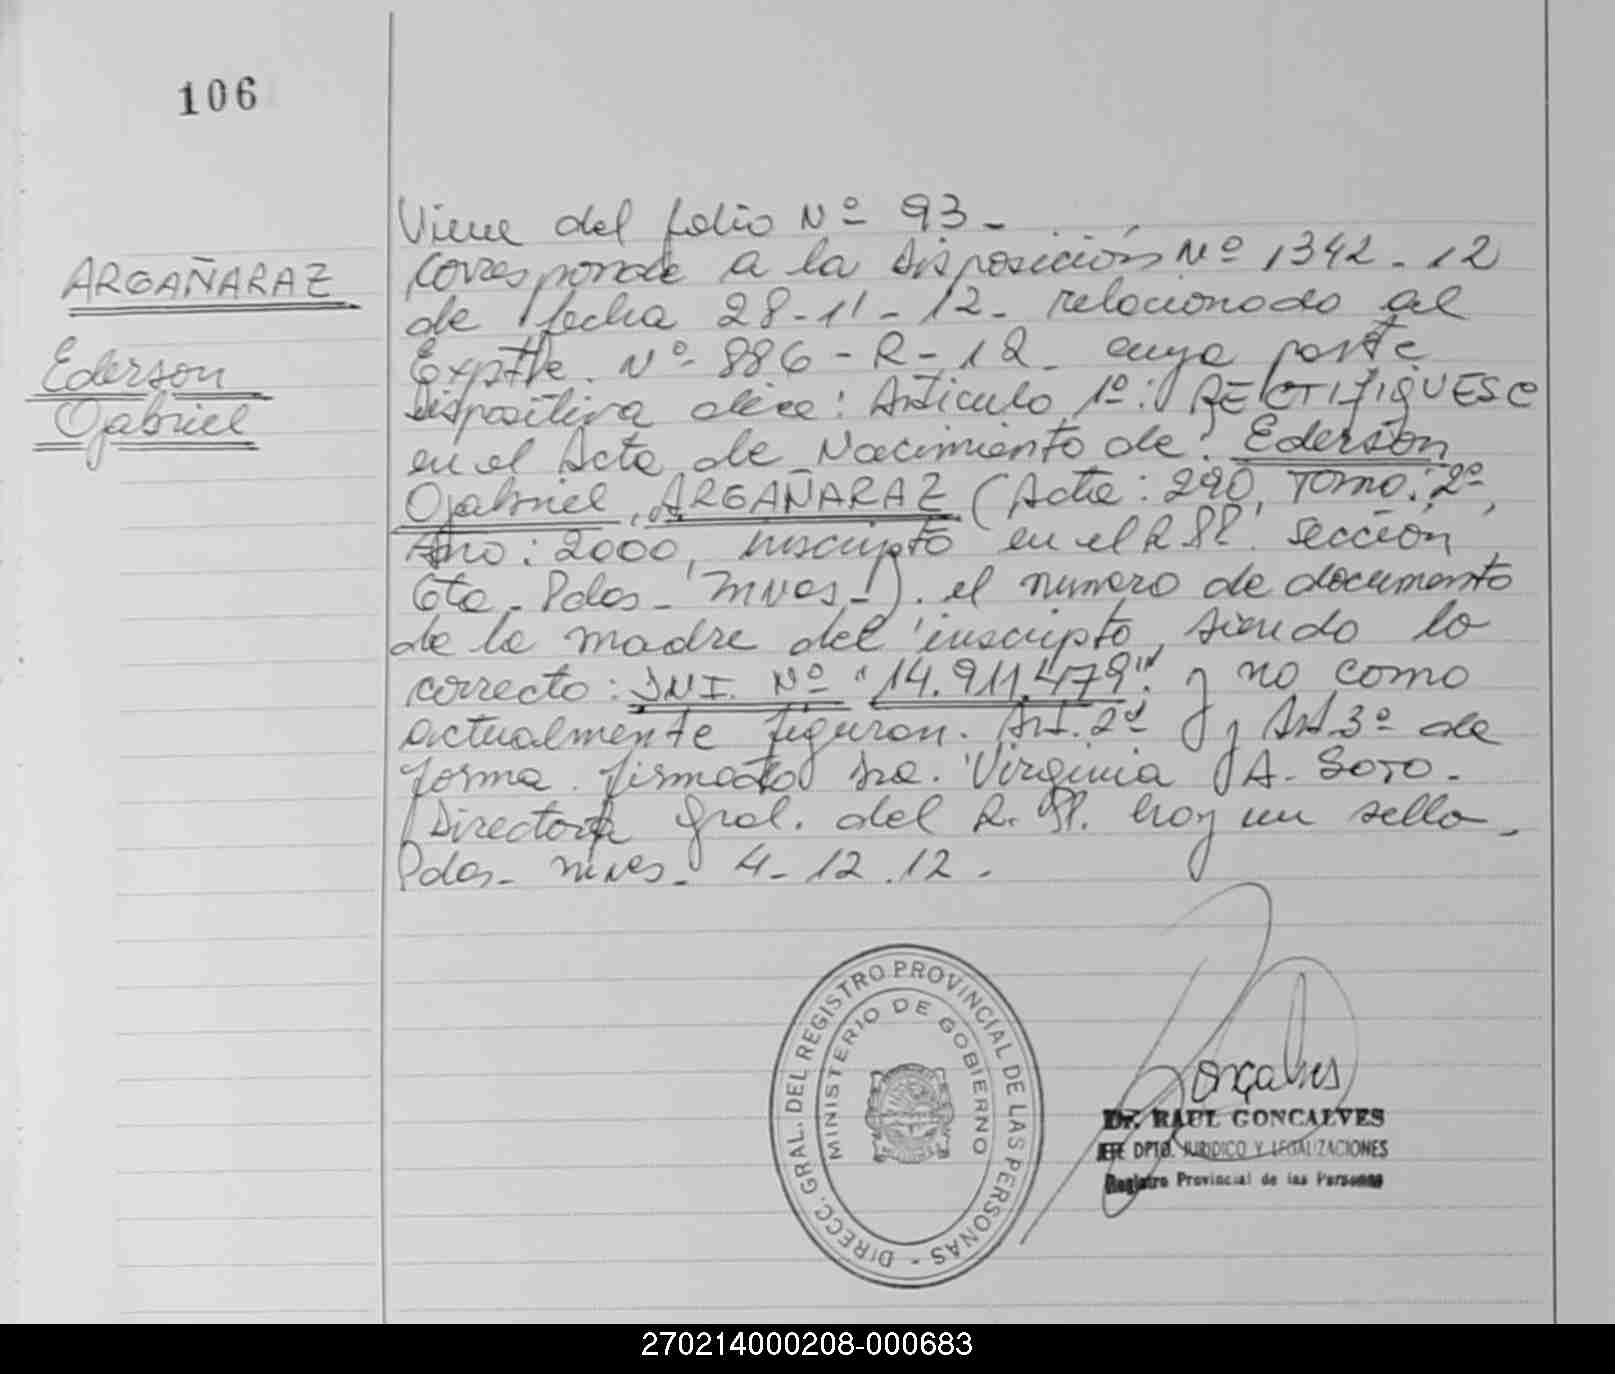 106
ARGAÑARAZ
Ederson
Gabriel
Viene del folio Nº 93-
Corresponde a la Disposición Nº 1342-12
de fecha 28-11-12- relacionado al
Expte. Nº 886-R-12- cuya parte
Dispositiva dice: Articulo 1º: RECTIFIQUESE
en el Acta de Nacimiento de: Ederson
Gabriel, ARGAÑARAZ (Acta: 290, Tomo: 2º,
Año: 2000, inscripto en el R.P.P. Sección
6ta- Pdas- Mnes-). el numero de documento
de la madre del inscripto, siendo lo
correcto: D.N.I. Nº "14.911.479" y no como
actualmente figuran. Art. 2º y Art 3º de
forma. firmado Sra. Virginia A. SOTO-
Directora Gral. del R.P.P. hay un sello-
Pdas- Mnes- 4-12.12-
DIRECC. GRAL. DEL REGISTRO PROVINCIAL DE LAS PERSONAS -
MINISTERIO DE GOBIERNO
Gonçalves
Dr. RAUL GONCALVES
JEFE DPTO. JURIDICO Y LEGALIZACIONES
Registro Provincial de las Personas
270214000208-000683